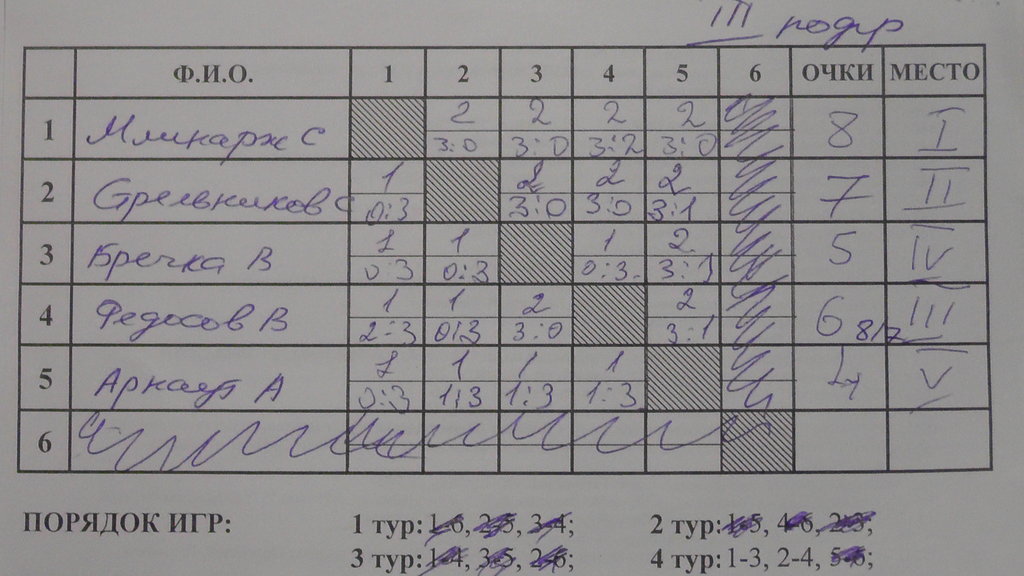 III подгр
Ф.И.О. 1 2 3 4 5 6 ОЧКИ МЕСТО
1 Млинарж С 2 2 2 2 8 I
3:0 3:0 3:2 3:0
2 Стрельников С 1 2 2 2 7 II
0:3 3:0 3:0 3:1
3 Бречка В 1 1 1 2 5 IV
0:3 0:3 0:3 3:1
4 Федосов В 1 1 2 2 6 8/7 III
2:3 0:3 3:0 3:1
5 А 1 1 1 1 4 V
0:3 1:3 1:3 1:3
6
ПОРЯДОК ИГР: 1 тур: 1-6, 2-5, 3-4; 2 тур: 1-5, 4-6, 2-3;
3 тур: 1-4, 3-5, 2-6; 4 тур: 1-3, 2-4, 5-6;